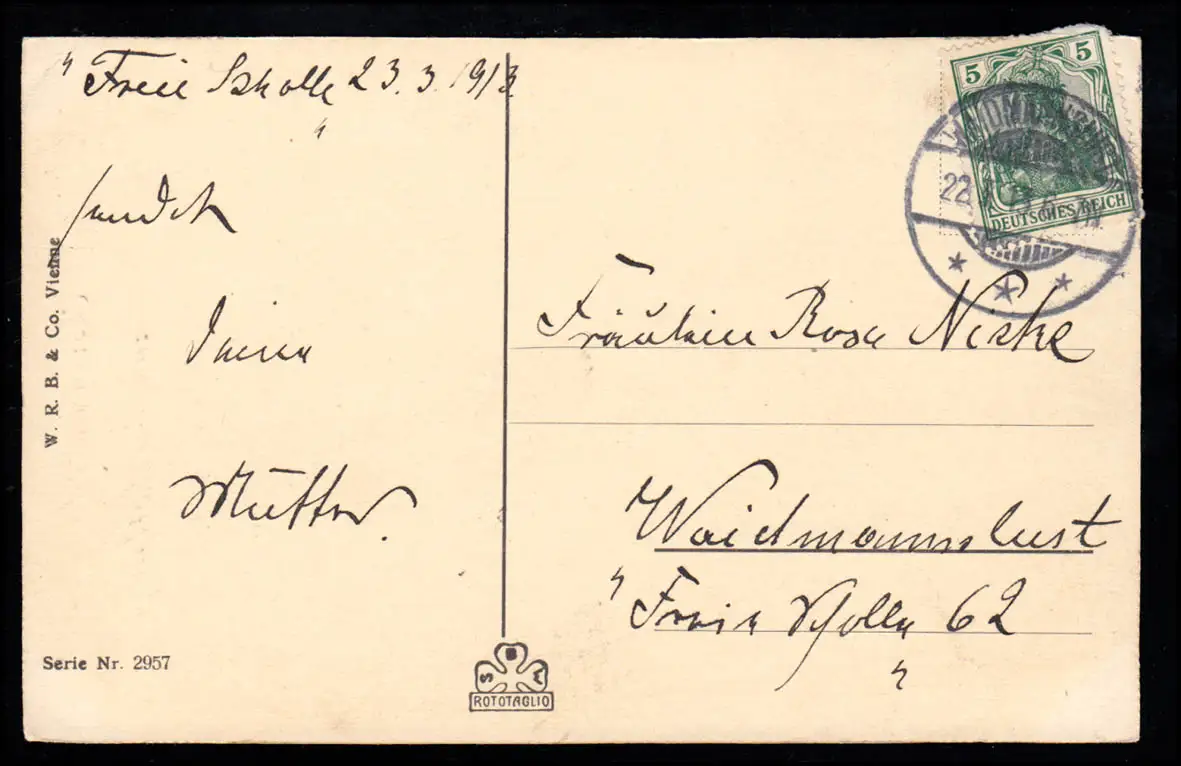 „Freie Scholle 23.3.1913.
"
sendet
Deine
Mutter.
W. R. B. & Co. Vienne
Serie Nr. 2957
S B W
ROTOTAGLIO
5 5
DEUTSCHES REICH
22
Fräulein Rosa Niske
Waidmannslust
„Freie Scholle 62
"